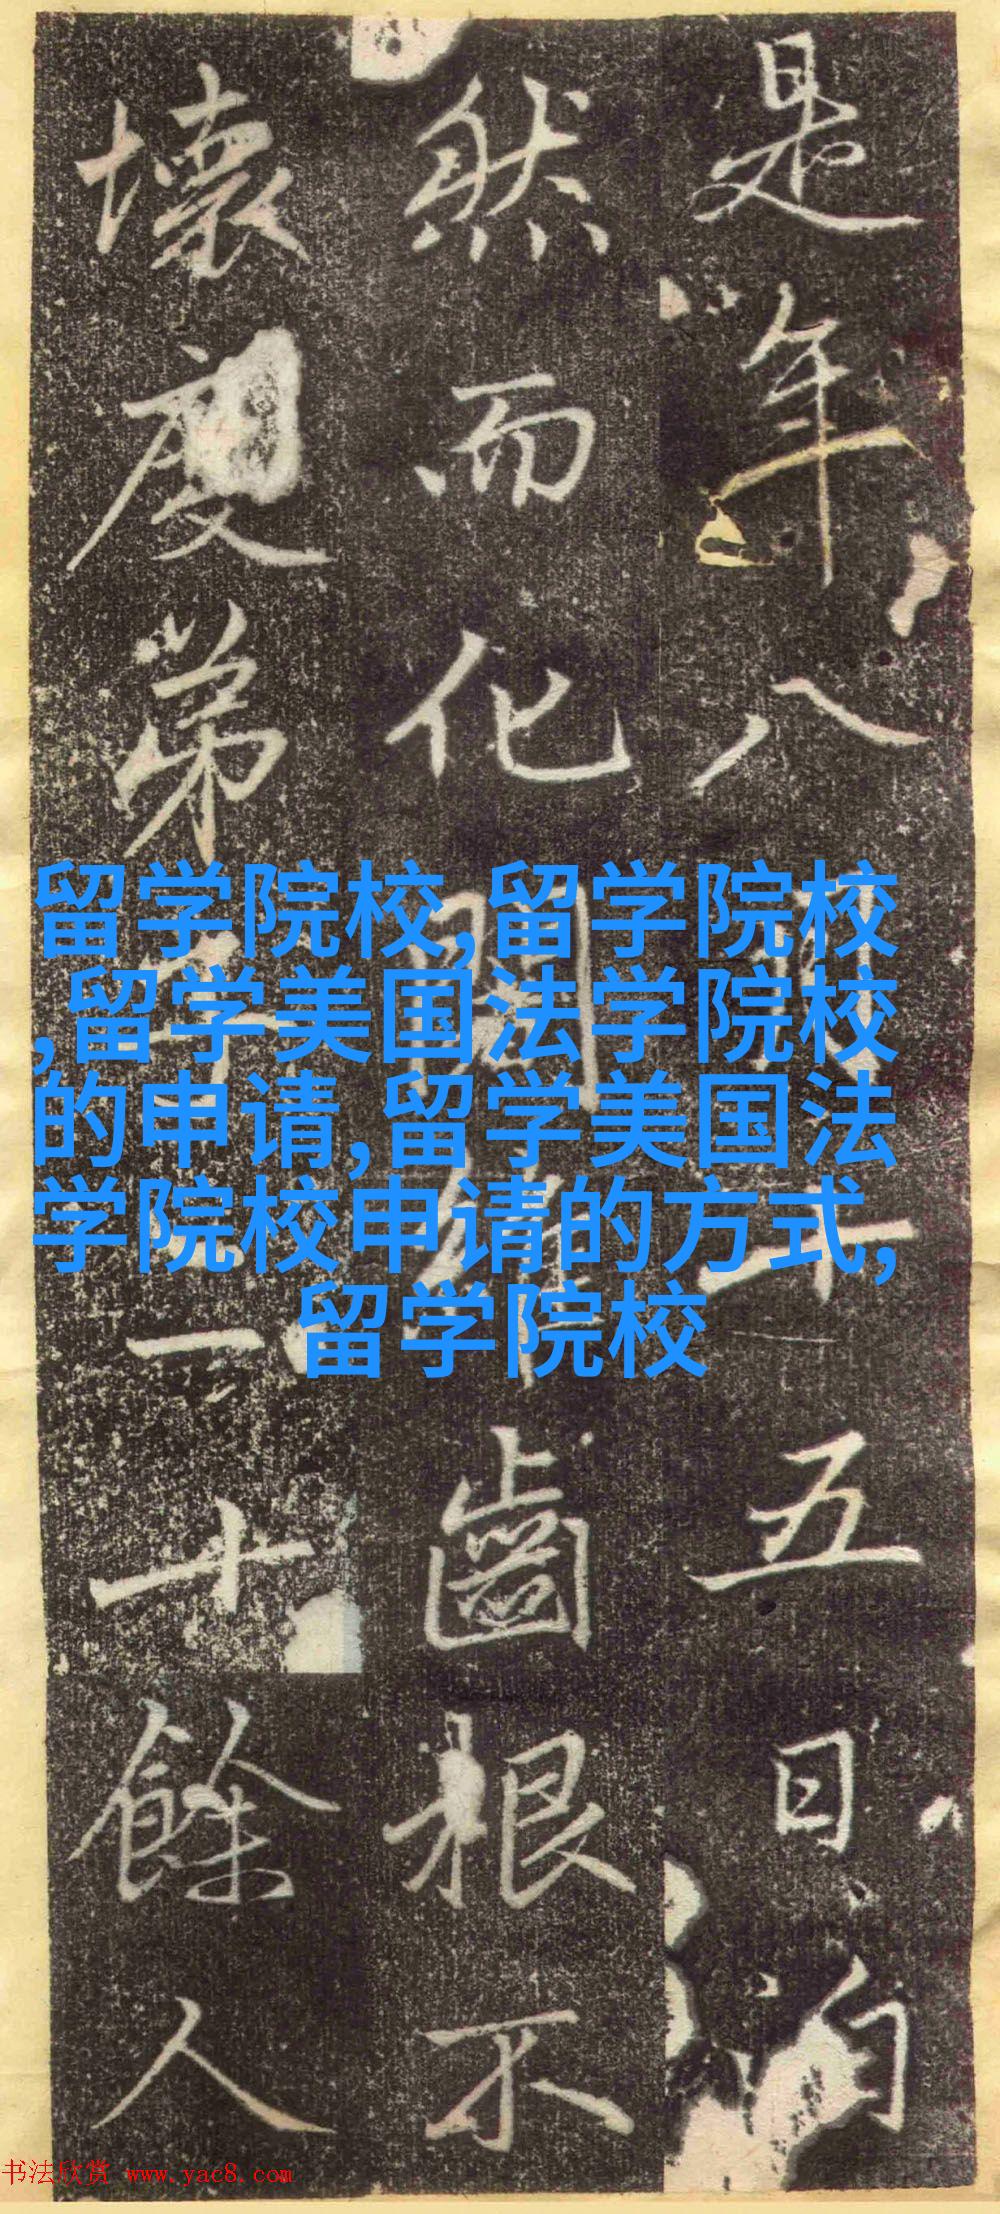 是年八月十五日
然而化齒根不
壞度弟子一十餘人
留学院校,留学院校
,留学美国法学院校
的申请,留学美国法
学院校申请的方式,
留学院校
书法欣赏 www.yac8.com